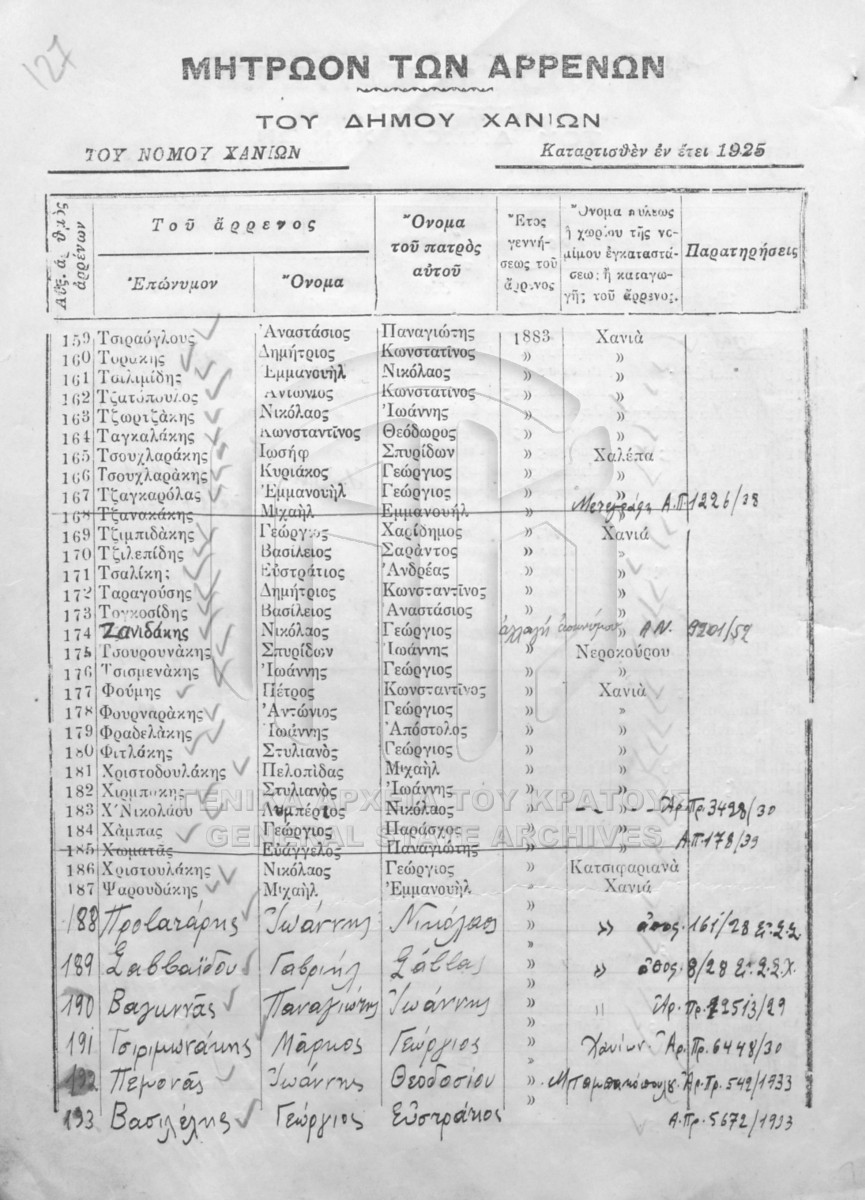 127
ΜΗΤΡΩΟΝ ΤΩΝ ΑΡΡΕΝΩΝ
ΤΟΥ ΔΗΜΟΥ ΧΑΝΙΩΝ
ΤΟΥ ΝΟΜΟΥ ΧΑΝΙΩΝ Καταρτισθὲν ἐν ἔτει 1925
Τοῦ ἄρρενος
Ἐπώνυμον Ὄνομα
Ὄνομα τοῦ πατρὸς αὐτοῦ
Ἔτος γεννήσεως τοῦ ἄρρενος
Παρατηρήσεις
159 Τσιραόγλους Ἀναστάσιος Παναγιώτης 1883 Χανιὰ
160 Τυρακης Δημήτριος Κωνσταντῖνος » »
161 Τσιλιμίδης Ἐμμανουὴλ Νικόλαος » »
162 Τζατόπουλος Ἀντώνιος Κωνσταντῖνος » »
163 Τζωρτζάκης Νικόλαος Ἰωάννης » »
164 Ταγκαλάκης Κωνσταντῖνος Θεόδωρος » »
165 Τσουχλαράκης Ἰωσήφ Σπυρίδων » Χαλέπα
166 Τσουχλαράκης Κυριάκος Γεώργιος » »
167 Τζαγκαρόλας Ἐμμανουὴλ Γεώργιος » »
168 Τζανακάκης Μιχαὴλ Ἐμμανουὴλ » Α.Π 1226/38
169 Τζιμπιδάκης Γεώργιος Χαρίδημος » Χανιά
170 Τζιλεπίδης Βασίλειος Σαράντος » »
171 Τσαλίκης Εὐστράτιος Ἀνδρέας » »
172 Ταραγούσης Δημήτριος Κωνσταντῖνος » »
173 Τογκοσίδης Βασίλειος Ἀναστάσιος » »
174 Ζανιδάκης Νικόλαος Γεώργιος ἀλλαγή » Α.Ν. 9201/52
175 Τσουρουνάκης Σπυρίδων Ἰωάννης » Νεροκούρου
176 Τσισμενάκης Ἰωάννης Γεώργιος » »
177 Φούμης Πέτρος Κωνσταντῖνος » Χανιὰ
178 Φουρναράκης Ἀντώνιος Γεώργιος » »
179 Φραδελάκης Ἰωάννης Ἀπόστολος » »
180 Φιτλάκης Στυλιανὸς Γεώργιος » »
181 Χριστοδουλάκης Πελοπίδας Μιχαὴλ » »
182 Χιρμπάκης Στυλιανὸς Ἰωάννης » »
183 Χ΄΄Νικολάου Λυμπέρτος Νικόλαος » Ἀρ.Πρ. 3428/30
184 Χάμπας Γεώργιος Παράσχος » »
185 Χωματᾶς Εὐάγγελος Παναγιώτης » » Α.Π 178/39
186 Χριστουλάκης Νικόλαος Γεώργιος » Κατσιφαριανὰ
187 Ψαρουδάκης Μιχαὴλ Ἐμμανουὴλ » Χανιά
ΓΕΝΙΚΑ ΑΡΧΕΙΑ ΤΟΥ ΚΡΑΤΟΥΣ
GENERAL STATE ARCHIVES
188 Προβατάρης Ἰωάννης Νικόλαος » » 161/28
189 Σαββαΐδου Γαβριήλ Σάββας » » 8/28
190 Βαγιννᾶς Παναγιώτης Ἰωάννης » " Ἀρ. Πρ. 12513/29
191 Τσιριμωνάκης Μᾶρκος Γεώργιος » Χανίων Ἀρ. Πρ. 6448/30
192 Πεμονᾶς Ἰωάννης Θεοδοσίου » Ἀρ.Πρ. 542/1933
193 Βασιλέλης Γεώργιος Εὐστράτιος » Α.Πρ. 5672/1933